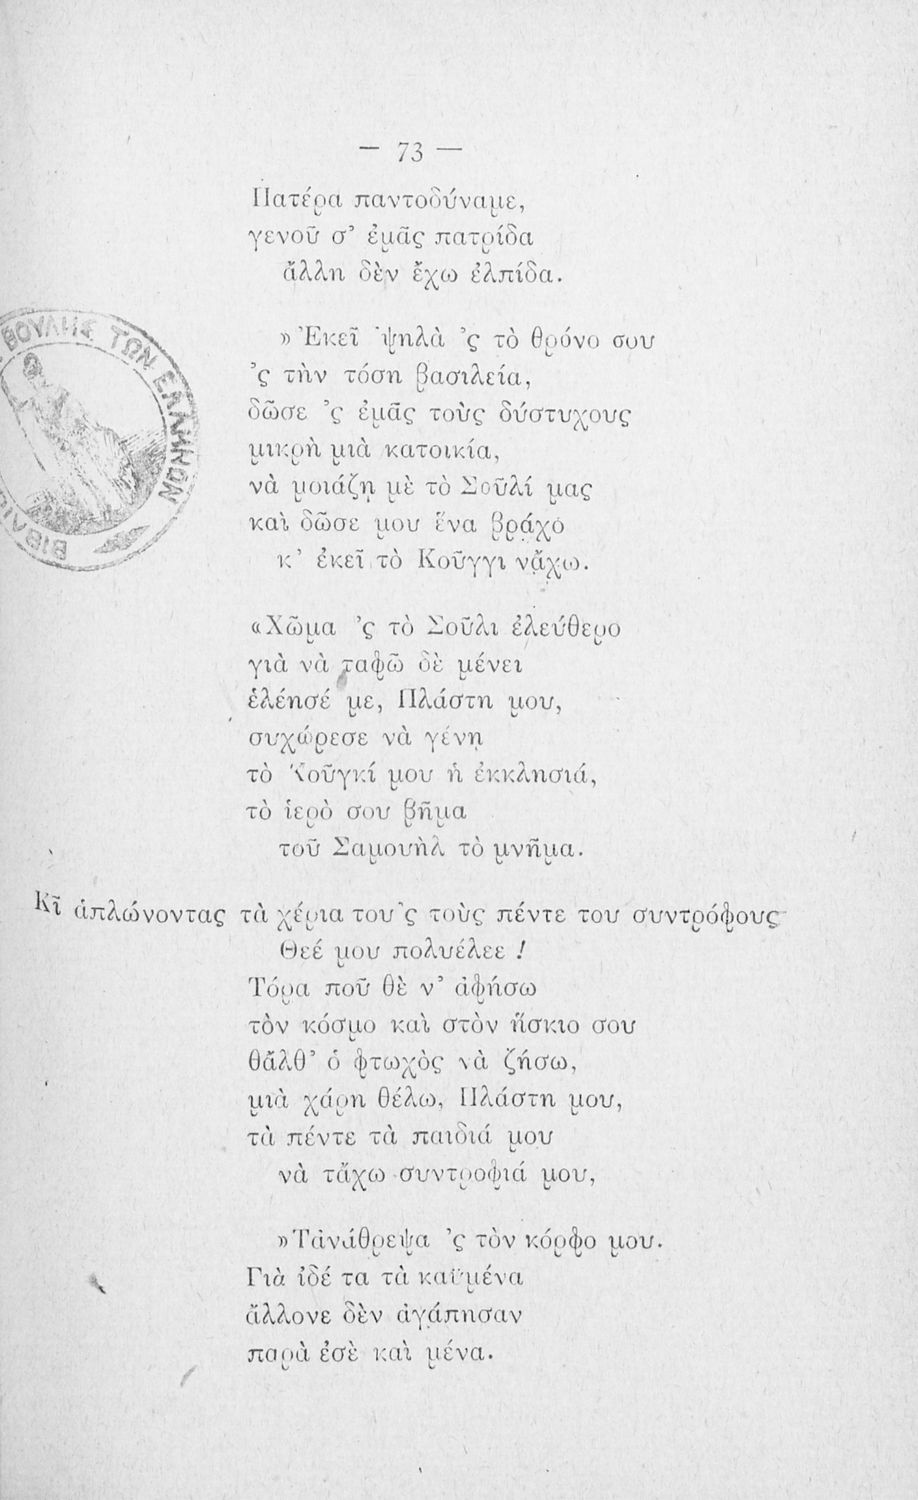 — 73 —
Πατέρα παντοδύναμε,
γενοῦ σ' ἐμᾶς πατρίδα
ἄλλη δὲν ἔχω ἐλπίδα.
» Ἐκεῖ 'ψηλὰ 'ς τὸ θρόνο σου
'ς τὴν τόση βασιλεία,
δῶσε 'ς ἐμᾶς τοὺς δύστυχους
μικρὴ μιὰ κατοικία,
νὰ μοιάζῃ μὲ τὸ Σοῦλί μας
καὶ δῶσε μου ἕνα βράχο
κ' ἐκεῖ τὸ Κοῦγγι νἄχω.
«Χῶμα 'ς τὸ Σοῦλι ἐλεύθερο
γιὰ νὰ ταφῶ δὲ μένει
ἐλέησέ με, Πλάστη μου,
συχώρεσε νὰ γένῃ
τὸ Κοῦγκί μου ἡ ἐκκλησιά,
τὸ ἱερὸ σου βῆμα
τοῦ Σαμουὴλ τὸ μνῆμα.
Κῖ ἁπλώνοντας τὰ χέρια του 'ς τοὺς πέντε του συντρόφους
Θεέ μου πολυέλεε !
Τόρα ποῦ θὲ ν' ἀφήσω
τὸν κόσμο καὶ στὸν ἥσκιο σου
θἄλθ' ὁ φτωχὸς νὰ ζήσω,
μιὰ χάρη θέλω, Πλάστη μου,
τὰ πέντε τὰ παιδιά μου
νὰ τἄχω συντροφιά μου,
»Τἀνάθρεψα 'ς τὸν κόρφο μου.
Γιὰ ἰδέ τα τὰ καϋμένα
ἄλλονε δὲν ἀγάπησαν
παρὰ ἐσὲ καὶ μένα.
ΒΟΥΛΗΣ ΤΩΝ ΕΛΛΗΝΩΝ